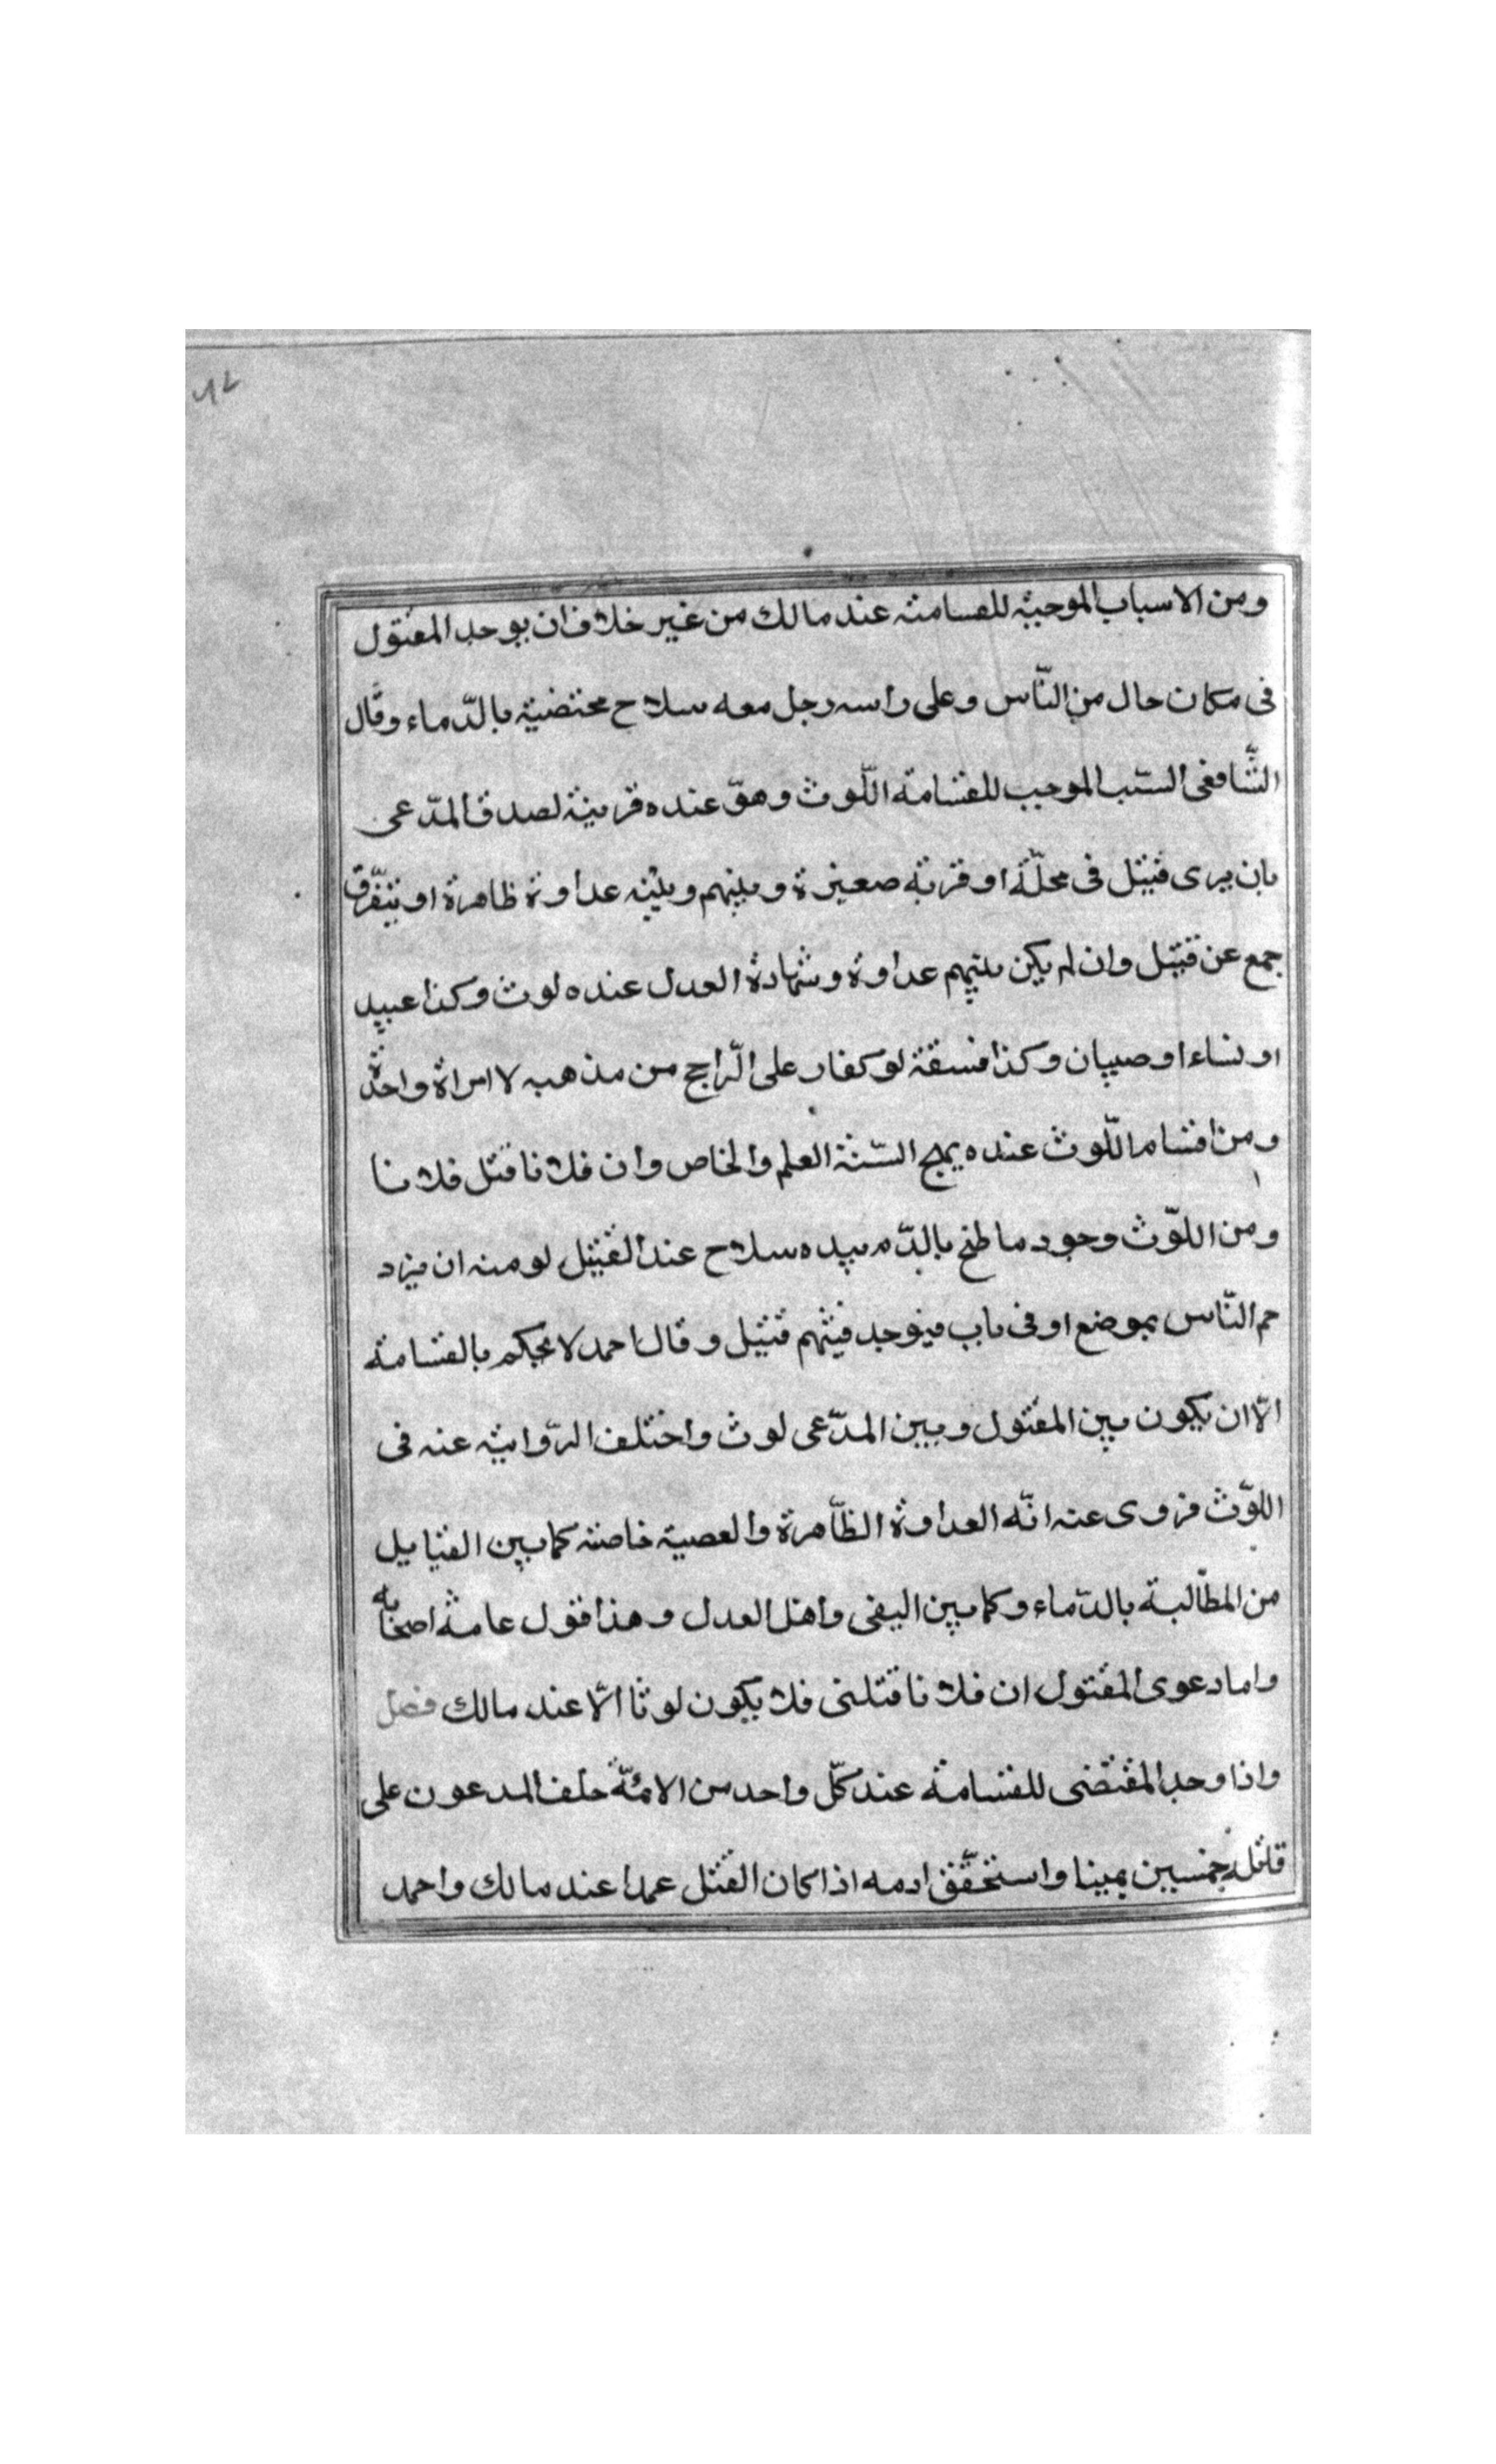 ومن الاسباب الموجبة للقسامة عند مالك من غير خلاف ان يوجد المقتول
فى مكان خال من النّاس وعلى راسه رجل معه سلاح مختضبة بالدّماء وقال
الشّافعى السّبب الموجب للقسامة اللّوث وهو عنده قرينة لصدق المدّعى
بان يرى قتيل فى محلّة او قرية صغيرة وبينهم وبينه عداوة ظاهرة او يتفرّق
جمع عن قتيل وان لم يكن بينهم عداوة وشهادة العدل عنده لوث وكذا عبيد
او نساء او صبيان وكذا فسقة لو كفار على الرّاجح من مذهبه لا امراة واحدة
ومن اقسام اللّوث عنده يهج السّنة العلم والخاص وان فلانا قتل فلانا
ومن اللوّث وجود ماطخ بالدّم بيده سلاح عند القتيل لو منه ان يزد
حم النّاس بموضع او فى باب فيوجد فيهم قتيل وقال احمد لا يحكم بالقسامة
الّا ان يكون بين المقتول وبين المدّعى لوث واختلف الرّواية عنه فى
اللوّث فروى عنه انّه العداوة الظّاهرة والعصبية خاصة كما بين القبايل
من المطالبة بالدّماء وكما بين اليغى واهل العدل وهذا قول عامة اصحابه
واما دعوى المقتول ان فلانا قتلنى فلا يكون لوثا الّا عند مالك فصل
واذا وجد المقتضى للقسامة عند كلّ واحد من الائمّة حلف المدعون على
قاتله خمسين يمينا واستحقّق ادمه اذا كان القتل عمدا عند مالك واحمد